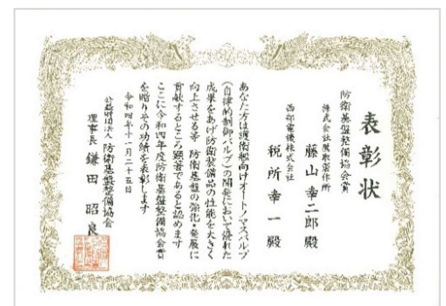 表彰状
防衛基盤整備協会賞
株式会社鷹取製作所
藤山幸二郎殿
西部電機株式会社
税所幸一殿
あなた方は護衛艦向けオートノマスバルブ
(自律的制御バルブ)の開発において優れた
成果をあげ防衛装備品の性能を大きく
向上させる等、防衛基盤の強化・発展に
貢献するところ顕著であると認めます
ここに令和四年度防衛基盤整備協会賞
を贈りその功績を表彰します
令和四年十一月二十五日
公益財団法人 防衛基盤整備協会
理事長 鎌田昭良